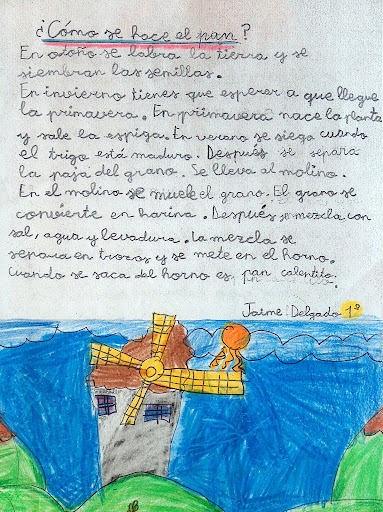 ¿Cómo se hace el pan?
En otoño se labra la tierra y se
siembran las semillas.
En invierno tienes que esperar a que llegue
la primavera. En primavera nace la planta
y sale la espiga. En verano se siega cuando
el trigo está maduro. Después se separa
la paja del grano. Se lleva al molino.
En el molino se muele el grano. El grano se
convierte en harina. Después se mezcla con
sal, agua y levadura. La mezcla se
separa en trozos y se mete en el horno.
Cuando se saca del horno es pan calentito.
Jaime Delgado 1º